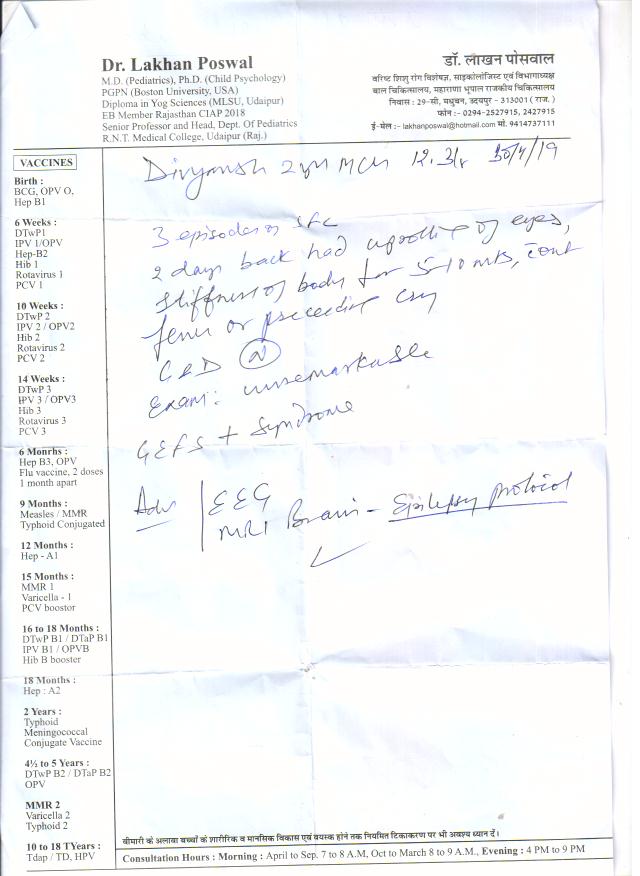 Dr. Lakhan Poswal
M.D. (Pediatrics), Ph.D. (Child Psychology)
PGPN (Boston University, USA)
Diploma in Yog Sciences (MLSU, Udaipur)
EB Member Rajasthan CIAP 2018
Senior Professor and Head, Dept. Of Pediatrics
R.N.T. Medical College, Udaipur (Raj.)
डॉ. लाखन पोसवाल
वरिष्ठ शिशु रोग विशेषज्ञ, साइकोलोजिस्ट एवं विभागाध्यक्ष
बाल चिकित्सालय, महाराणा भूपाल राजकीय चिकित्सालय
निवास : 29-सी, मधुबन, उदयपुर - 313001 ( राज. )
फोन :- 0294-2527915, 2427915
ई-मेल :- lakhanposwal@hotmail.com मो. 9414737111
VACCINES
Birth :
BCG, OPV O,
Hep B1
6 Weeks :
DTwP1
IPV 1/OPV
Hep-B2
Hib 1
Rotavirus 1
PCV 1
10 Weeks :
DTwP 2
IPV 2 / OPV2
Hib 2
Rotavirus 2
PCV 2
14 Weeks :
DTwP 3
IPV 3 / OPV3
Hib 3
Rotavirus 3
PCV 3
6 Monrhs :
Hep B3, OPV
Flu vaccine, 2 doses
1 month apart
9 Months :
Measles / MMR
Typhoid Conjugated
12 Months :
Hep - A1
15 Months :
MMR 1
Varicella - 1
PCV boostor
16 to 18 Months :
DTwP B1 / DTaP B1
IPV B1 / OPVB
Hib B booster
18 Months :
Hep : A2
2 Years :
Typhoid
Meningococcal
Conjugate Vaccine
4½ to 5 Years :
DTwP B2 / DTaP B2
OPV
MMR 2
Varicella 2
Typhoid 2
10 to 18 TYears :
Tdap / TD, HPV
Divyansh 2 yr MCh 12.3 30/4/19
3 episodes of
2 days back had of eyes,
stiffness of body for 5-10 mts,
fever or preceeding cry
(N)
Exam: unremarkable
GEFS + Syndrome
Adv EEG
MRI Brain - Epilepsy protocol
बीमारी के अलावा बच्चों के शारीरिक व मानसिक विकास एवं वयस्क होने तक नियमित टिकाकरण पर भी अवश्य ध्यान दें।
Consultation Hours : Morning : April to Sep. 7 to 8 A.M, Oct to March 8 to 9 A.M., Evening : 4 PM to 9 PM